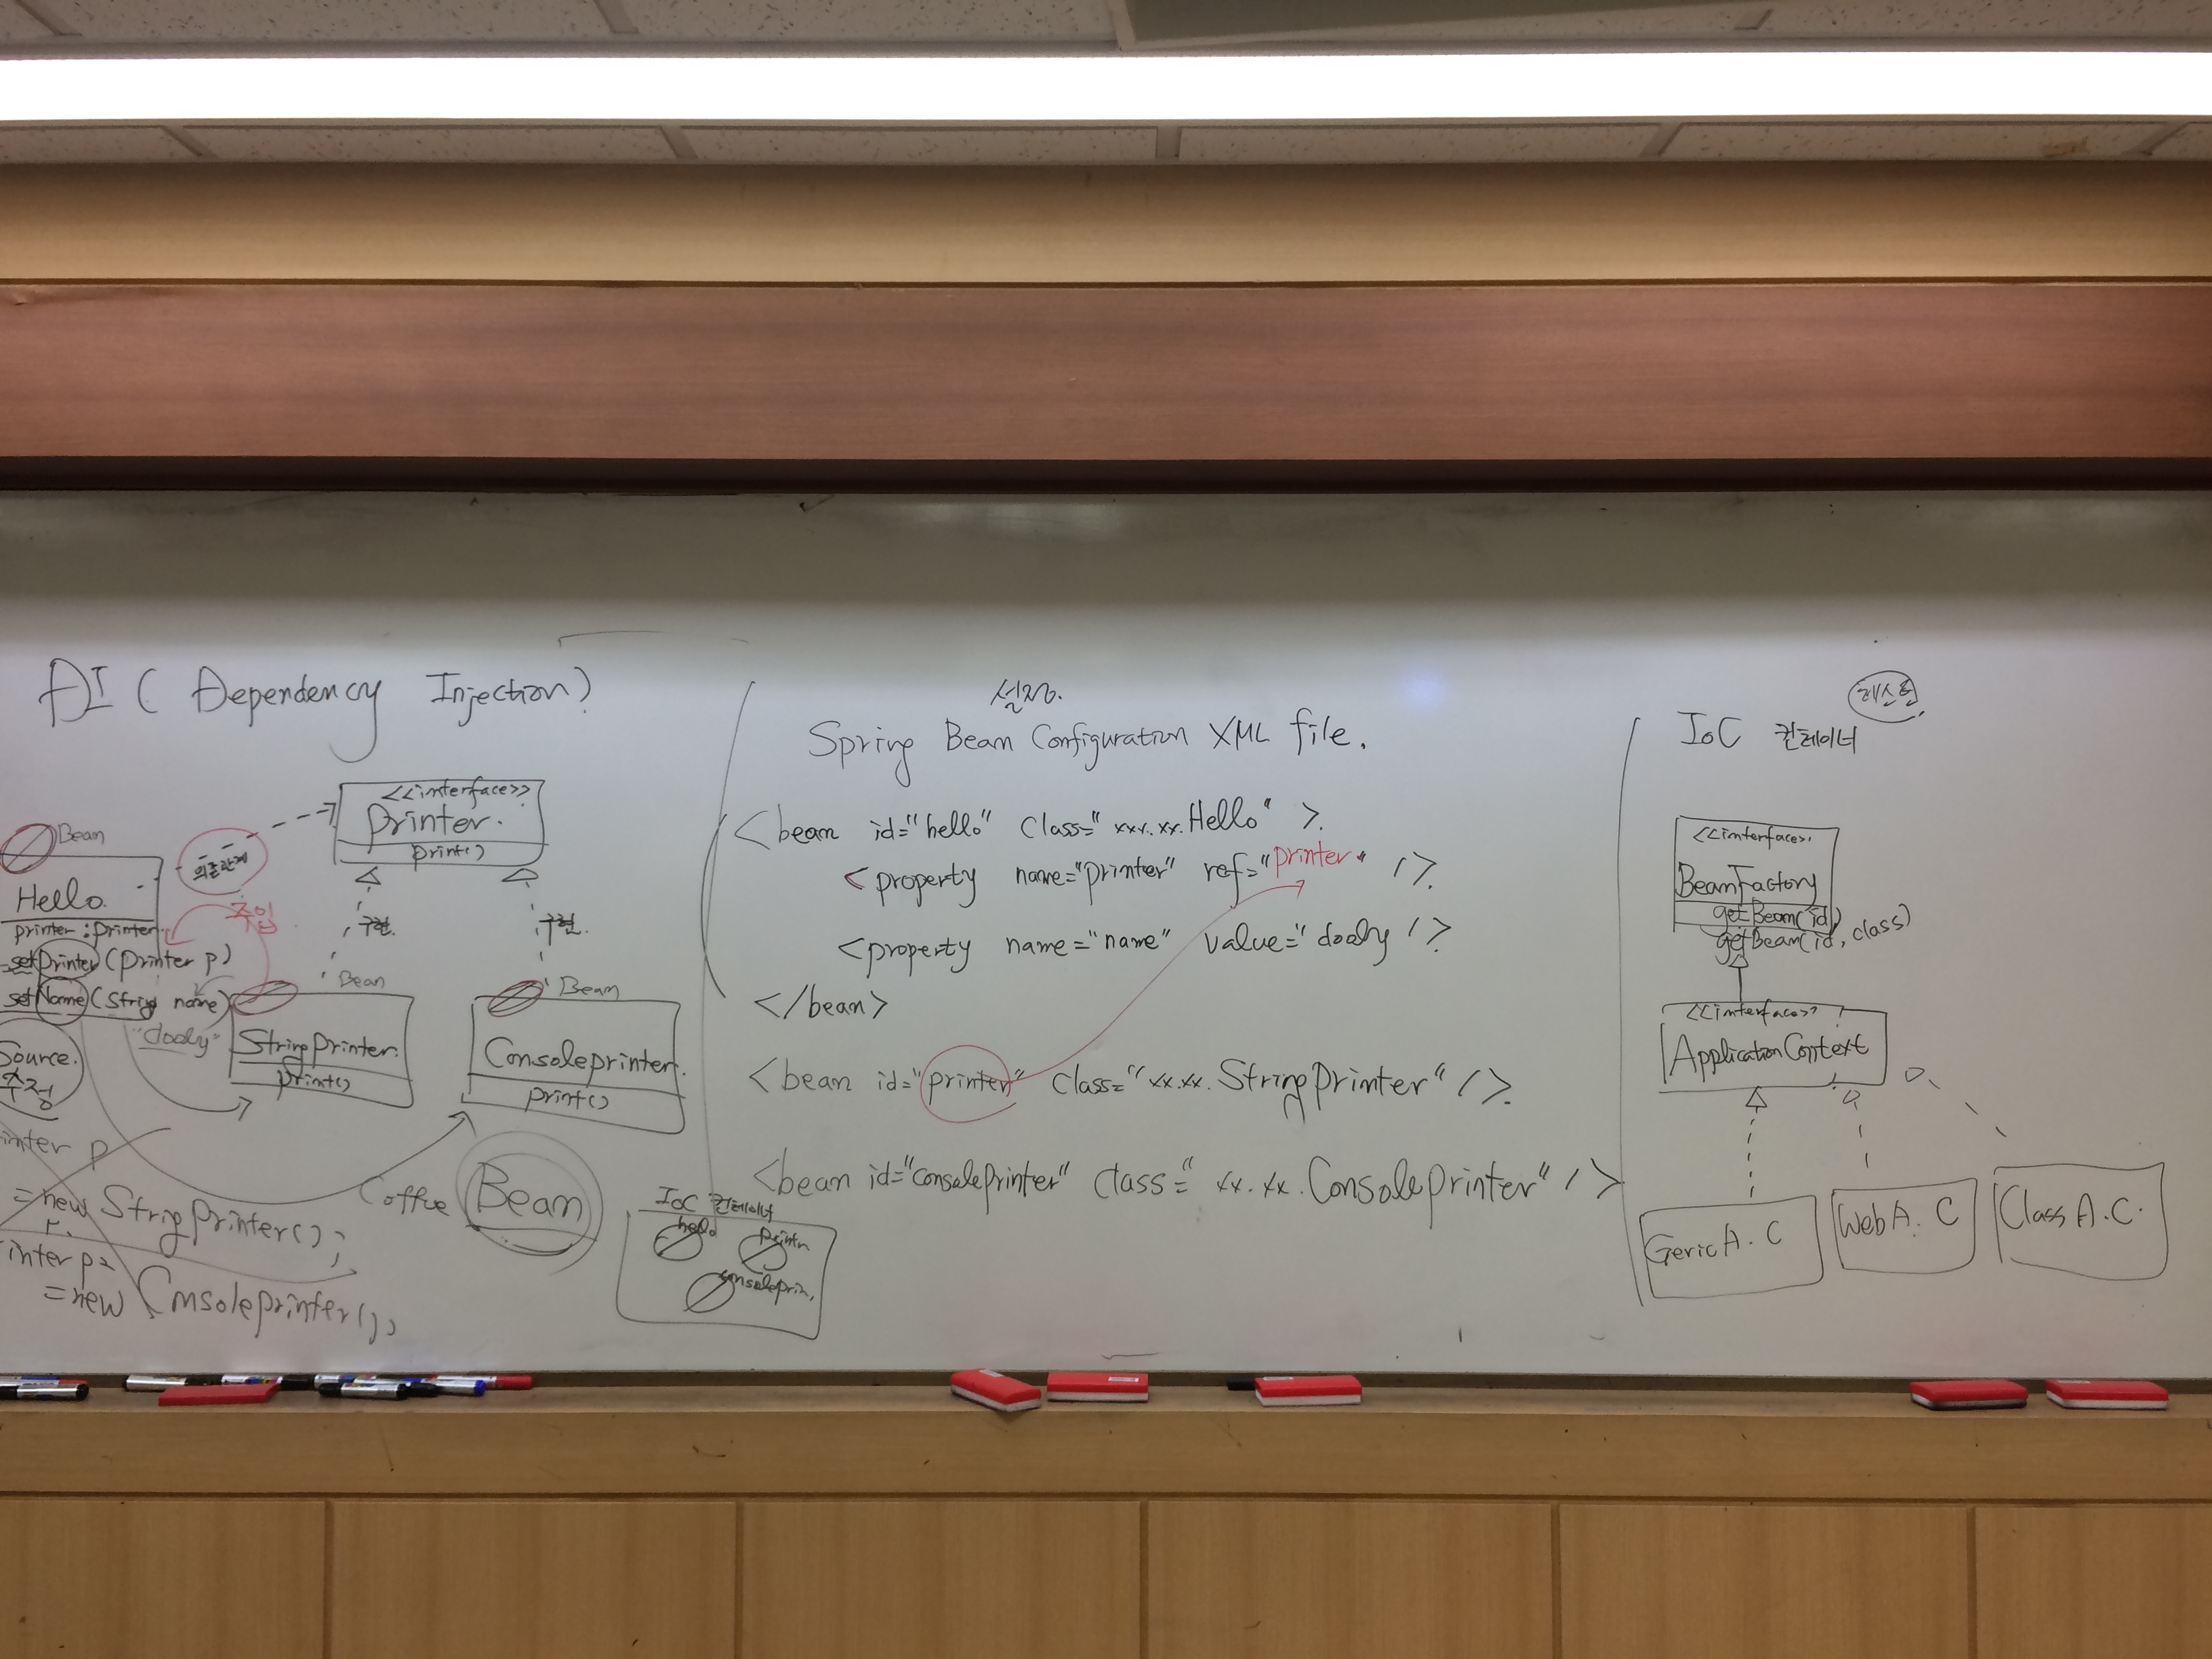 DI ( Dependency Injection)
<<interface>>
Printer.
print()
Bean
의존관계
Hello.
printer : Printer
주입
구현.
구현.
setPrinter (Printer p)
setName (String name)
"dooly"
Bean
StringPrinter.
print()
Bean
ConsolePrinter.
print()
Source.
수정
inter p
= new StringPrinter();
inter p2
= new ConsolePrinter();
Coffee Bean
IoC 컨테이너
hello
printer
consoleprin.
설정.
Spring Bean Configuration XML file.
<bean id="hello" class="xxx.xx.Hello" >
<property name="printer" ref="printer" />
<property name="name" value="dooly />
</bean>
<bean id="printer" class="xx.xx.StringPrinter" />
<bean id="consolePrinter" class="xx.xx.ConsolePrinter" />
IoC 컨테이너
<<interface>>
BeanFactory
getBean(id)
getBean(id, class)
<<interface>>
ApplicationContext
GericA.C
WebA.C
ClassA.C.